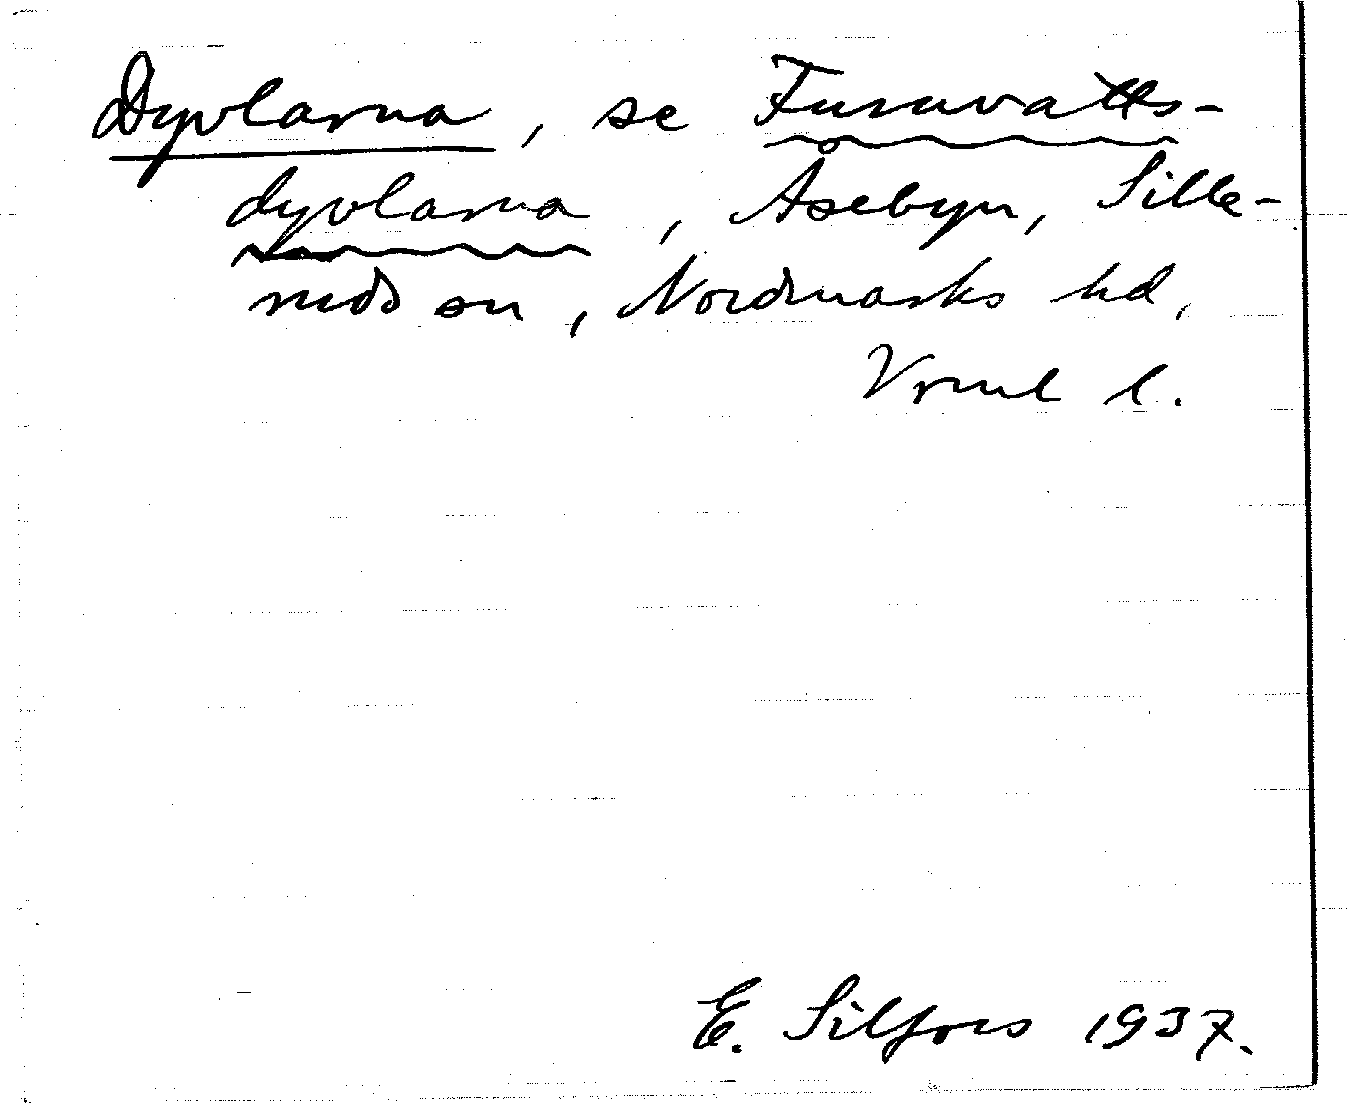 Dyvlarna, se Furuvatts-
dyvlarna, Åsebyn, Sille-
ruds sn, Nordmarks hd,
Vrml l.
E. Silfors 1937.